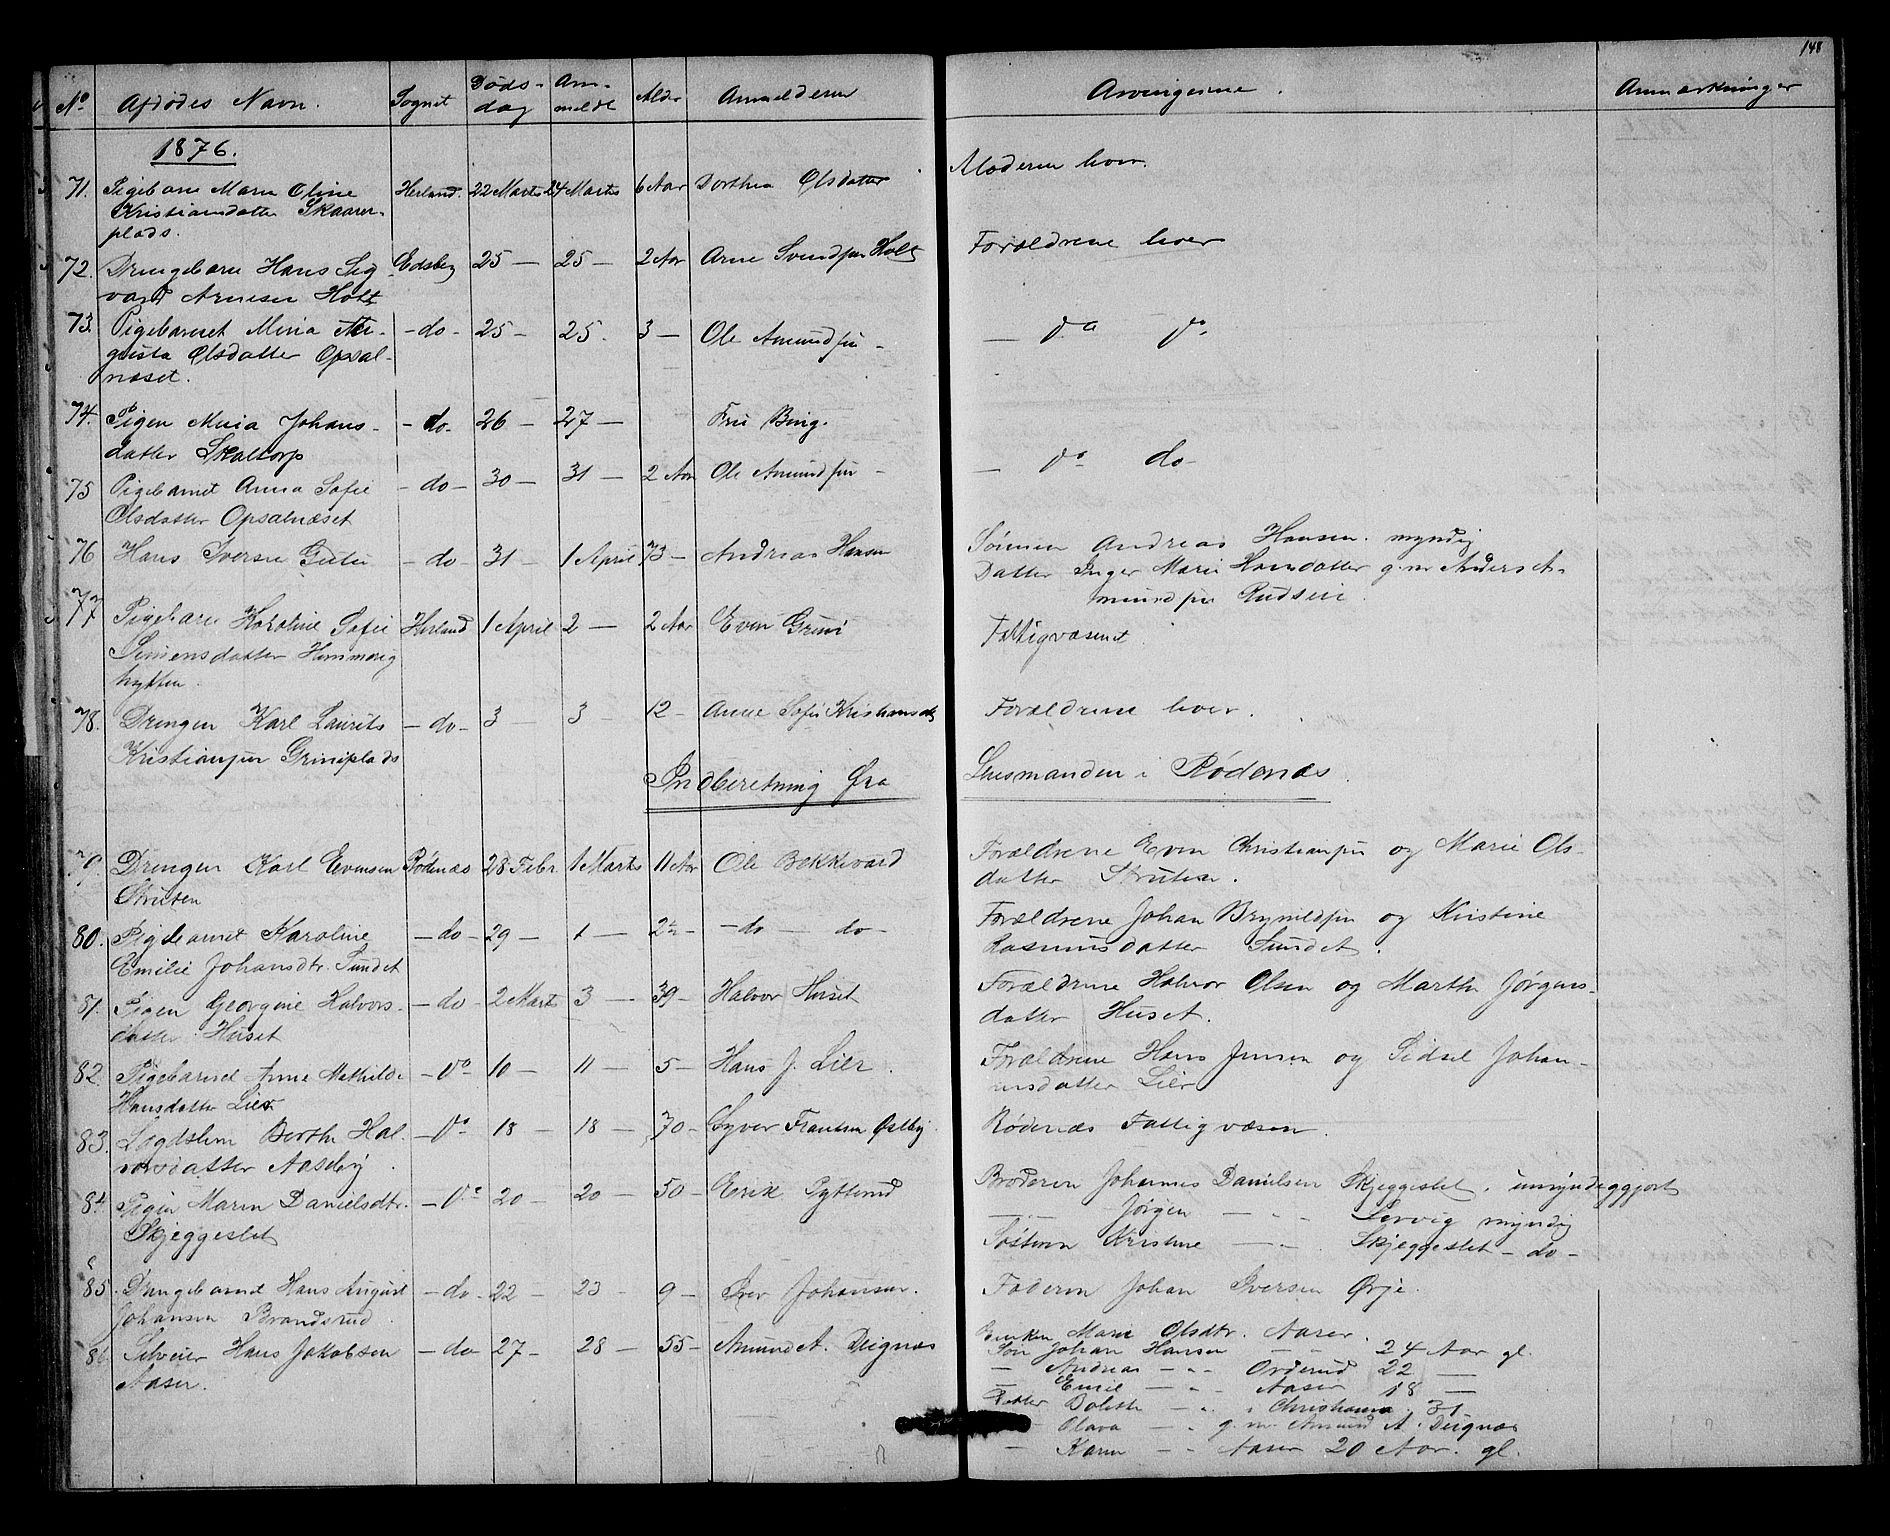 148
No Afdødes Navn. Sognet Døds-dag An-meldt Alder Anmelderen Arvingerne. Anmærkninger
1876.
71. Pigebarn Maren Oline Herland. 22 Marts 24 Marts 6 Aar Dorthea Olsdatter Moderen lever.
Kristiansdatter Skaarer-
plads.
72. Drengebarn Hans Sig Edsberg 25 — 25 — 2 Aar Arne Svendsen Holt Forældrene lever
vard Arnesen Holt
73. Pigebarnet Mina Au- - do - 25 — 25. 3 — Ole Amundsen - — do do
gusta Olsdatter Opsal-
næset.
74. Pigen Mina Johans- - do - 26 — 27 — Fru Bing.
datter Skaltorp
75 Pigebarnet Anna Sofie - do - 30 — 31 — 2 Aar Ole Amundsen - — do do
Olsdatter Opsalnæset
76 Hans Iversen - do - 31 — 1 April 73 — Andreas Hansen Sønnen Andreas Hansen. myndig
Datter Inger Marie Hansdatter g. m. Anders A-
mundsen Rudsen.
77 Pigebarn Karoline Sofie Herland 1 April 2 — 2 Aar Even Grini Fattigvæsenet
Simensdatter
hytten.
78. Drengen Karl Laurits - do - 3 — 3 — 12 - Anne Sofie Kristiansd. Forældrene lever.
Kristiansen Griniplads
Indberetning fra Lensmanden i Rødenæs.
79. Drengen Karl Evensen Rødenæs 28 Febr 1 Marts 11 Aar Ole Bekkevard Forældrene Even Christiansen og Marie Ols-
Struten datter Struten.
80. Pigebarnet Karoline - do - 29 — 1 — - do - do - Forældrene Johan Brynildsen og Kristine
Emilie Johansdtr. Sundet Rasmusdatter Sundet.
81. Pigen Georgine Halvors- - do - 2 Marts 3 — 39 - Halvor Huset Forældrene Halvor Olsen og Marthe Jørgens-
datter Huset datter Huset.
82. Pigebarnet Anne Mathilde - do - 10 — 11 — 5 - Hans J. Lier. Forældrene Hans Jensen og Sidsel Johan-
Hansdatter Lier nesdatter Lier
83. Lægdslem Berthe Hal- - do - 18 — 18 — 70 - Syver Frantsen Østby. Rødenæs Fattigvæsen.
vorsdatter Aaseby.
84. Pigen Maren Danielsdtr. - do - 20 — 20 — 50 - Eerik Pytterud Broderen Johannes Danielsen Skjeggeslet. umyndiggjort
Skjeggeslet — Jørgen — Servig myndig
Søsteren Kristine — Skjeggeslet - do -
85. Drengebarnet Hans August - do - 22 — 23 — 9 - Iver Johansen. Faderen Johan Iversen Ørje.
Johansen Brandsrud.
86. Selveier Hans Jakobsen - do - 27 — 28 — 55 - Amund A. Deignæs Enken Marie Olsdtr. Aaser.
Aaser. Søn Johan Hansen — 24 Aar gl.
— Andreas — Orderud 22 —
— Emil — Aaser 18 —
Datter Bolette — i Christiania. 31
— Olava — g. m. Amund A. Deignæs
— Karen — Aaser 20 Aar. gl.